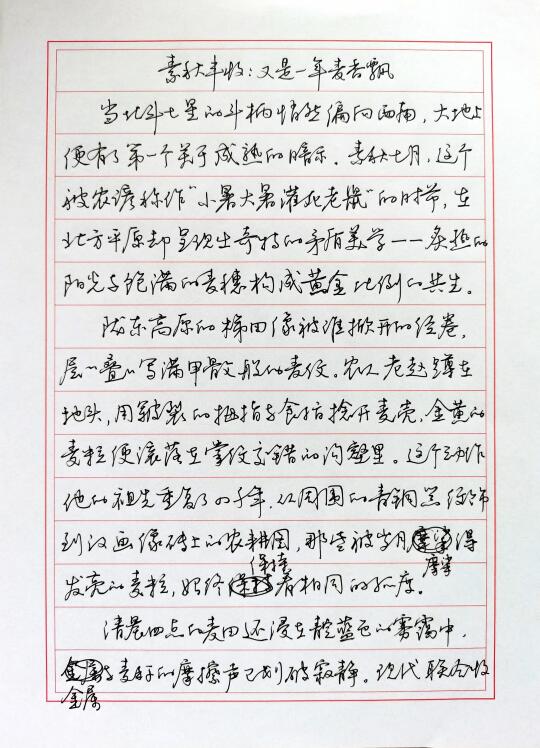 素秋丰收：又是一年麦香飘
当北斗七星的斗柄悄然偏向西南，大地上
便有了第一个关于成熟的暗示。素秋七月，这个
被农谚称作“小暑大暑灌死老鼠”的时节，在
北方平原却呈现出奇特的矛盾美学——炙热的
阳光与饱满的麦穗构成黄金比例的共生。
陇东高原的梯田像被谁掀开的经卷，
层层叠叠写满甲骨文般的麦纹。农人老赵蹲在
地头，用皲裂的拇指与食指捻开麦壳，金黄的
麦粒便滚落在掌纹交错的沟壑里。这个动作
他的祖先重复了四千年，从周围的青铜器纹饰
到汉画像砖上的农耕图，那些被岁月摩挲得
发亮的麦粒，始终保持着相同的弧度。
清晨四点的麦田还浸在靛蓝色的雾霭中，
金属与麦秆的摩擦声已划破寂静。现代联合收